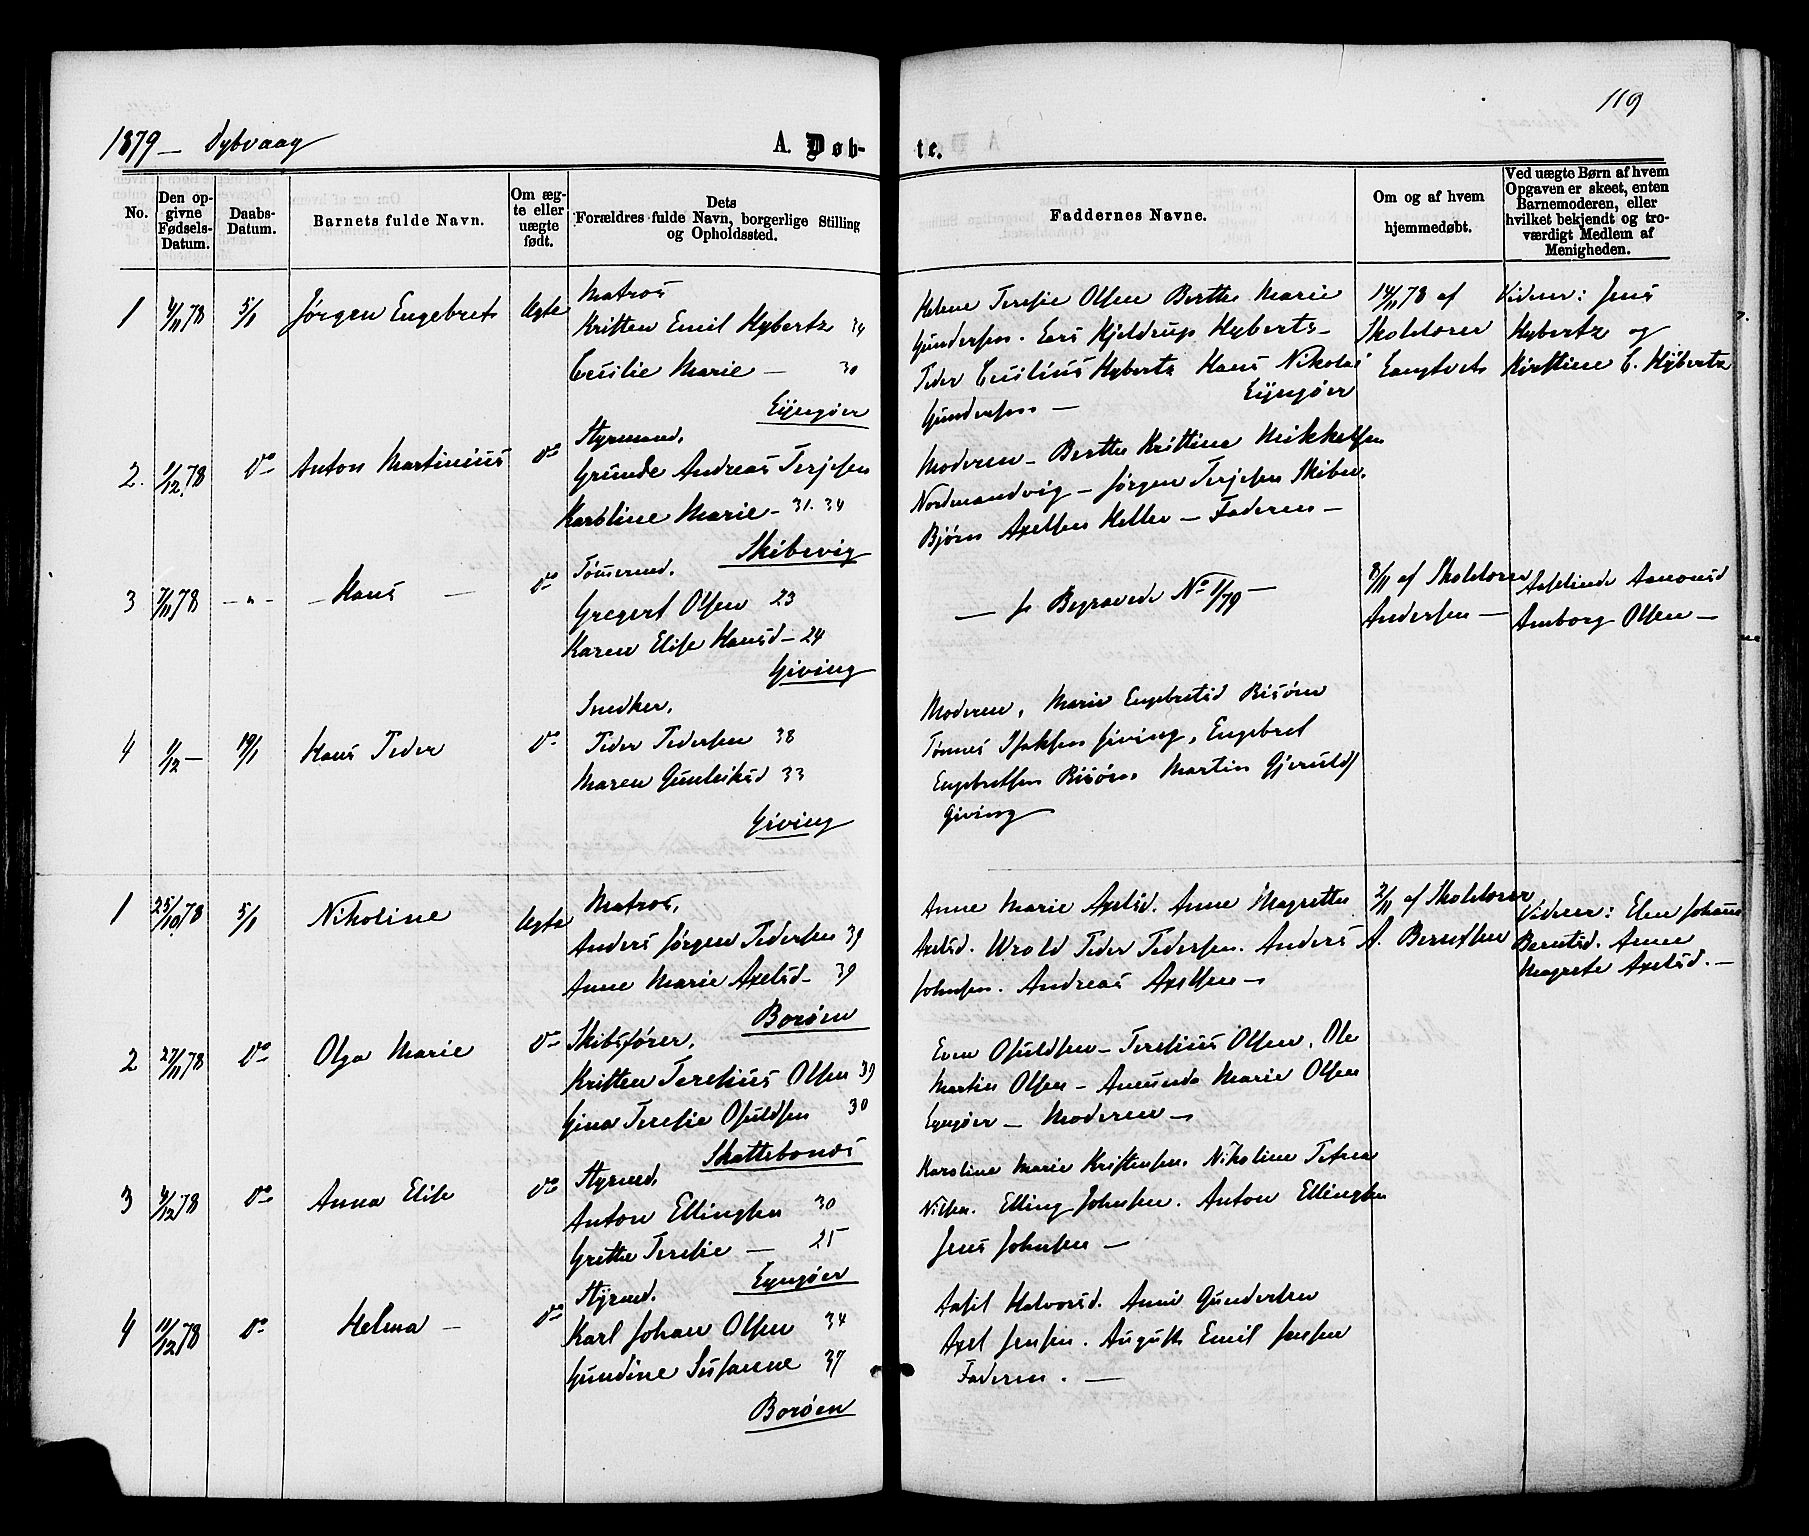 119
1879 – Dybvaag
A. Døb-
te.
No.
Den op-
givne
Fødsels-
Datum.
Daabs-
Datum.
Barnets fulde Navn.
Om æg-
te eller
uægte
født.
Dets
Forældres fulde Navn, borgerlige Stilling
og Opholdssted.
Faddernes Navne.
Om og af hvem
hjemmedøbt.
Ved uægte Børn af hvem
Opgaven er skeet, enten
Barnemoderen, eller
hvilket bekjendt og tro-
værdigt Medlem af
Menigheden.
1 4/11 78 5/1 Jørgen Engebret Ægte
Matros
Kristen Emil Hybertz 34
Cecilie Marie – 30
Eyngjøer
Helene Teresie Olsen Berthe Marie
Gundersen. Lars Kjeldrup Hyberts –
Peder Cecilius Hyberts Hans Nikolai
Gundersen – Eyngjøer
14/11 78 af
Skolelærer
Langtvet
Vidner: Jens
Hybertz og
Kirstine C. Hybertz
2. 1/12 78 Do Anton Martinius Do
Styrmand,
Grunde Andreas Terjesen
Karoline Marie – 31. 34
Skibevig
Moderen – Berthe Kristine Mikkelsen
Nordmandvig – Jørgen Terjesen Skibev.
Bjørn Axelsen Helle – Faderen –
3 7/11 78 – " – – Hans – Do
Tømmermd.
Gregert Olsen 23
Karen Elise Hansd – 24
Giving
– fr Begravede No 1/79 –
8/11 af Skolelærer
Andersen –
Aaselinde Aanonsd
Amborg Olsen –
4 1/12 – 19/1 Hans Peder Do
Snedker,
Peder Pedersen 38
Maren Gunleiksd 33
Giving
Moderen, Marie Engebretsd Bisøen
Tønnes Isaksen Giving, Engebret
Engebretsen Bisøen, Martin Gjerulds
Giving
1 25/10 78 5/1 Nikoline Ægte
Matros,
Anders Jørgen Pedersen 39
Anne Marie Axelsd – 39
Borøen
Anne Marie Axelsd. Anne Magrethe
Axelsd. Wrold Peder Pedersen. Anders
Johnsen. Andreas Axelsen –
2/11 af Skolelærer
A. Berntsen
Vidner: Elen Johanne
Berntsd. Anne
Magrete Axelsd. –
2 27/11 78 Do Olga Marie Do
Skibsfører,
Kristen Teresius Olsen 39
Gina Teresie Osuldsen 30
Skattebonæs
Even Osuldsen – Teresius Olsen, Ole
Martin Olsen – Amunda Marie Olsen
Eyngjøer – Moderen –
3 4/12 78 Do Anna Elise Do
Styrmd,
Anton Ellingsen 30
Grethe Teresie – 25
Eyngjøer
Karoline Marie Kristensen. Nikoline Petrea
Nilsen. Elling Johnsen. Anton Ellingsen
Jens Johnsen –
4 11/12 78 Do Helma – Do
Styrmd.
Karl Johan Olsen 34
Gundine Susanne 37
Borøen
Aasil Halvorsd. Anne Gundersen
Axel Jensen. August Emil Jensen
Faderen. –